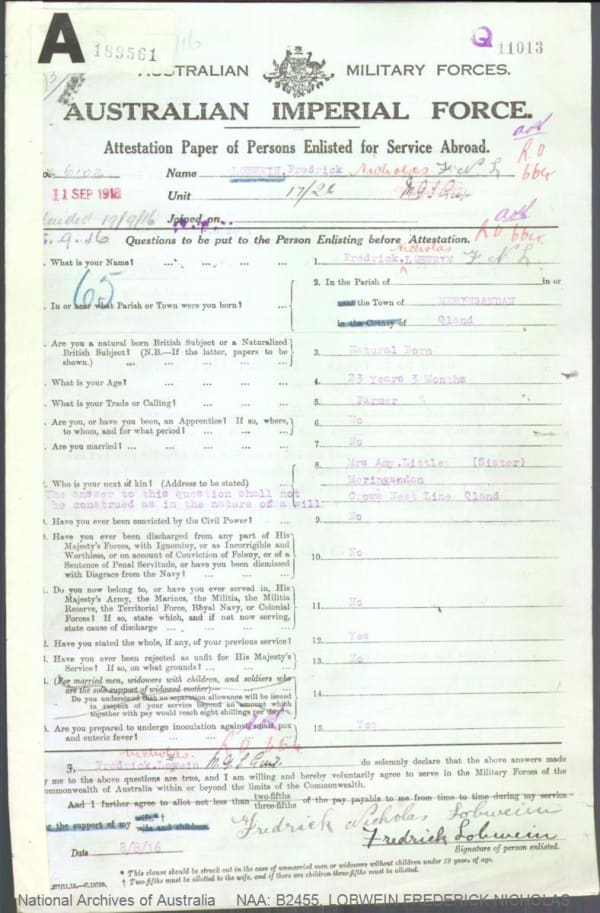 A 189561 /16
Q 11013
AUSTRALIAN MILITARY FORCES.
AUSTRALIAN IMPERIAL FORCE.
Attestation Paper of Persons Enlisted for Service Abroad.
No. 6102 Name LOBWEIN, Fredrick Nicholas F N L
11 SEP 1916 Unit 17/26
Joined on
Questions to be put to the Person Enlisting before Attestation.
Nicholas
. What is your Name? ... 1. Fredrick, LOBWEIN F N L
65
2. In the Parish of in or
. In or near what Parish or Town were you born? ... near the Town of MERINGANDAN
in the County of Qland
. Are you a natural born British Subject or a Naturalized
British Subject? (N.B.—If the latter, papers to be
shown.) ... 3. Natural Born
. What is your Age? ... 4. 23 Years 3 Months
. What is your Trade or Calling? ... 5. Farmer
. Are you, or have you been, an Apprentice? If so, where,
to whom, and for what period? ... 6. No
. Are you married? ... 7. No
8. Mrs Amy.Little: (Sister)
. Who is your next of kin? (Address to be stated) ... Meringandan
The answer to this question shall not
be construed as in the nature of a will
Crows Nest Line Qland
. Have you ever been convicted by the Civil Power? ... 9. No
. Have you ever been discharged from any part of His
Majesty's Forces, with Ignominy, or as Incorrigible and
Worthless, or on account of Conviction of Felony, or of a
Sentence of Penal Servitude, or have you been dismissed
with Disgrace from the Navy? ... 10. No
. Do you now belong to, or have you ever served in, His
Majesty's Army, the Marines, the Militia, the Militia
Reserve, the Territorial Force, Royal Navy, or Colonial
Forces? If so, state which, and if not now serving,
state cause of discharge ... 11. No
2. Have you stated the whole, if any, of your previous service? 12. Yes
3. Have you ever been rejected as unfit for His Majesty's
Service? If so, on what grounds? ... 13. No
4. (For married men, widowers with children, and soldiers who
are the sole support of widowed mother)—
Do you understand that no separation allowance will be issued
in respect of your service beyond an amount which
together with pay would reach eight shillings per day? 14.
. Are you prepared to undergo inoculation against small pox
and enteric fever? ... 15. Yes
Nicholas
I, Fredrick, Lobwein do solemnly declare that the above answers made
by me to the above questions are true, and I am willing and hereby voluntarily agree to serve in the Military Forces of the
Commonwealth of Australia within or beyond the limits of the Commonwealth.
And I further agree to allot not less than two-fifths three-fifths of the pay payable to me from time to time during my service
the support of my wife* † wife and children
Fredrick Nicholas Lobwein
Fredrick Lobwein
Date 8/8/16 Signature of person enlisted.
* This clause should be struck out in the case of unmarried men or widowers without children under 18 year. of age.
† Two-fifths must be allotted to the wife, and if there are children three-fifths must be allotted.
National Archives of Australia NAA: B2455, LOBWEIN FREDERICK NICHOLAS